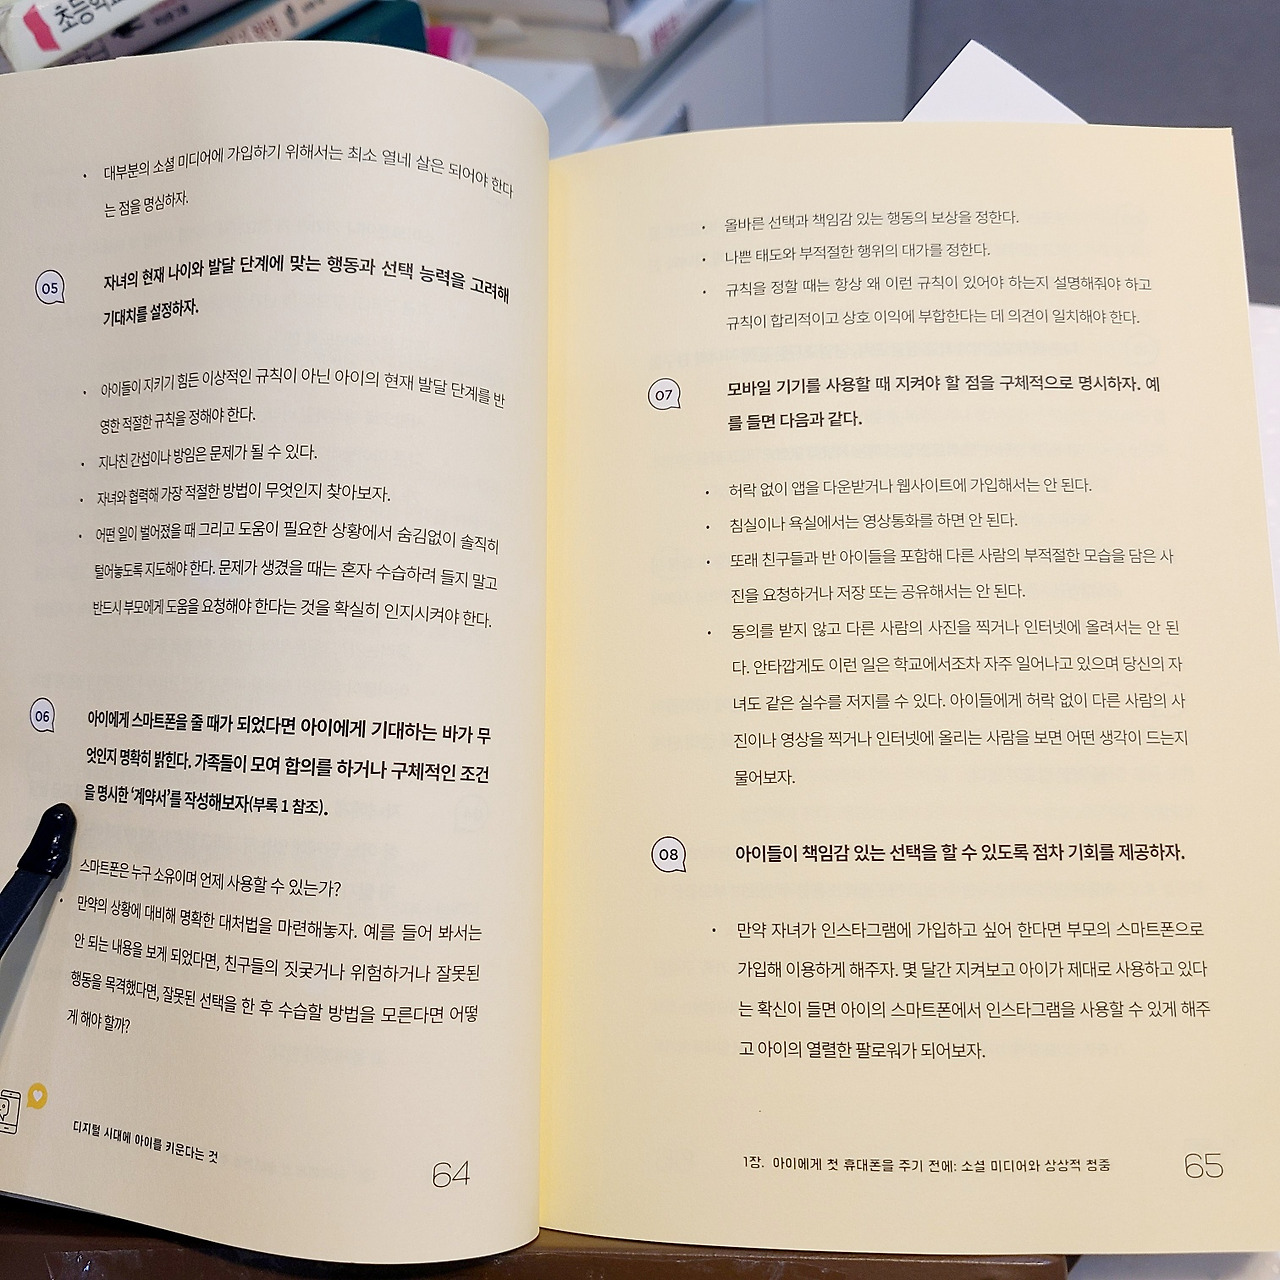 초등
대부분의 소셜 미디어에 가입하기 위해서는 최소 열네 살은 되어야 한다
는 점을 명심하자.
05
자녀의 현재 나이와 발달 단계에 맞는 행동과 선택 능력을 고려해
기대치를 설정하자.
아이들이 지키기 힘든 이상적인 규칙이 아닌 아이의 현재 발달 단계를 반
영한 적절한 규칙을 정해야 한다.
지나친 간섭이나 방임은 문제가 될 수 있다.
자녀와 협력해 가장 적절한 방법이 무엇인지 찾아보자.
어떤 일이 벌어졌을 때 그리고 도움이 필요한 상황에서 숨김없이 솔직히
털어놓도록 지도해야 한다. 문제가 생겼을 때는 혼자 수습하려 들지 말고
반드시 부모에게 도움을 요청해야 한다는 것을 확실히 인지시켜야 한다.
06
아이에게 스마트폰을 줄 때가 되었다면 아이에게 기대하는 바가 무
엇인지 명확히 밝힌다. 가족들이 모여 합의를 하거나 구체적인 조건
을 명시한 ‘계약서’를 작성해보자(부록 1 참조).
스마트폰은 누구 소유이며 언제 사용할 수 있는가?
만약의 상황에 대비해 명확한 대처법을 마련해놓자. 예를 들어 봐서는
안 되는 내용을 보게 되었다면, 친구들의 짓궂거나 위험하거나 잘못된
행동을 목격했다면, 잘못된 선택을 한 후 수습할 방법을 모른다면 어떻
게 해야 할까?
디지털 시대에 아이를 키운다는 것
64
올바른 선택과 책임감 있는 행동의 보상을 정한다.
나쁜 태도와 부적절한 행위의 대가를 정한다.
규칙을 정할 때는 항상 왜 이런 규칙이 있어야 하는지 설명해줘야 하고
규칙이 합리적이고 상호 이익에 부합한다는 데 의견이 일치해야 한다.
07
모바일 기기를 사용할 때 지켜야 할 점을 구체적으로 명시하자. 예
를 들면 다음과 같다.
허락 없이 앱을 다운받거나 웹사이트에 가입해서는 안 된다.
침실이나 욕실에서는 영상통화를 하면 안 된다.
또래 친구들과 반 아이들을 포함해 다른 사람의 부적절한 모습을 담은 사
진을 요청하거나 저장 또는 공유해서는 안 된다.
동의를 받지 않고 다른 사람의 사진을 찍거나 인터넷에 올려서는 안 된
다. 안타깝게도 이런 일은 학교에서조차 자주 일어나고 있으며 당신의 자
녀도 같은 실수를 저지를 수 있다. 아이들에게 허락 없이 다른 사람의 사
진이나 영상을 찍거나 인터넷에 올리는 사람을 보면 어떤 생각이 드는지
물어보자.
08
아이들이 책임감 있는 선택을 할 수 있도록 점차 기회를 제공하자.
만약 자녀가 인스타그램에 가입하고 싶어 한다면 부모의 스마트폰으로
가입해 이용하게 해주자. 몇 달간 지켜보고 아이가 제대로 사용하고 있다
는 확신이 들면 아이의 스마트폰에서 인스타그램을 사용할 수 있게 해주
고 아이의 열렬한 팔로워가 되어보자.
1장. 아이에게 첫 휴대폰을 주기 전에: 소셜 미디어와 상상적 청중
65